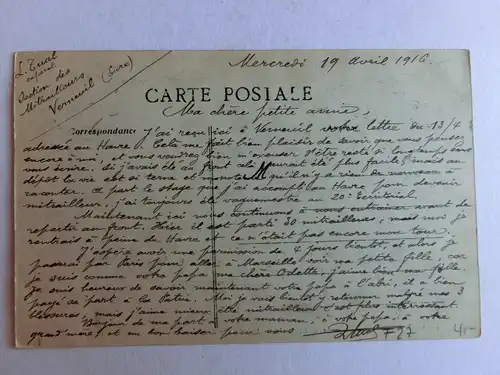 L. Tual
caporal
Section des
Mitrailleurs
Verneuil (Eure)
Mercredi 19 Avril 1916
CARTE POSTALE
Ma chère petite amie,
Correspondance J'ai reçu ici à Verneuil votre lettre du 13/4
adressée au Havre. Cela me fait bien plaisir de savoir que vous pensez
encore à moi, et vous voudrez bien m'excuser d'être resté si longtemps sans
vous écrire. Si j'avais été au front cela m'aurait été plus facile, mais au
dépôt la vie est si terne et monotone qu'il n'y a rien de nouveau à
raconter. À part le stage que j'ai accompli au Havre pour devenir
mitrailleur, j'ai toujours été vaguemestre au 20e territorial.
Maintenant ici nous continuons à nous entrainer avant de
repartir au front. Hier il est parti 30 mitrailleurs, mais moi je
rentrais à peine du Havre et ce n'était pas encore mon tour.
J'espère avoir une permission de 4 jours bientôt, et alors je
passerai par Paris pour aller à Marseille voir ma petite fille, car
je suis comme votre papa ma chère Odette, j'aime bien ma fille.
Je suis heureux de savoir maintenant votre papa à l'abri, il a bien
payé sa part à la Patrie. Moi je vais bientôt y retourner malgré mes 3
blessures, mais j'aime mieux être mitrailleur c'est plus intéressant
Bonjour de ma part à votre maman, à votre papa, à votre
grand'mère, et un bon baiser pour vous. LTual
F27
4,-